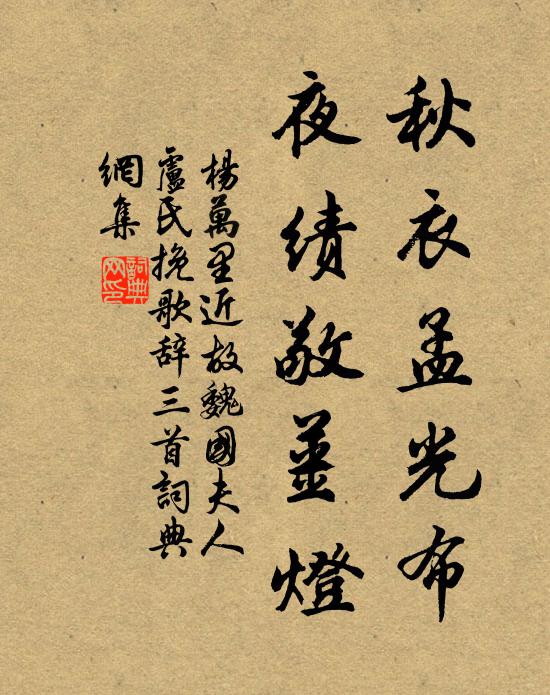 秋衣孟光布
夜绩敬薑燈
楊萬里近故魏國夫人
盧氏挽歌辞三首詞典
網集
詞典網印